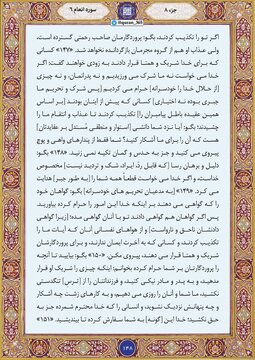 جزء ۸
@quran_365
سوره انعام ۶
اگر تو را تکذیب کردند، بگو: پروردگارتان صاحب رحمتی گسترده است،
ولی عذاب او هم از گروه مجرمان بازگردانده نخواهد شد. «۱۴۷» کسانی
که برای خدا شریک و همتا قرار دادند به زودی خواهند گفت: اگر
خدا می خواست نه ما شرک می ورزیدیم و نه پدرانمان، و نه چیزی
از حلال خدا را [خودسرانه] حرام می کردیم [پس شرک و تحریم ما
جبری بوده نه اختیاری] کسانی که پیش از اینان بودند [بر اساس
همین عقیده باطل پیامبران را] تکذیب کردند تا عذاب و انتقام ما را
چشیدند؛ بگو: آیا نزد شما دانشی [استوار و منطقی مُستدل بر عقایدتان]
هست که آن را برای ما آشکار کنید؟ شما فقط از پندارهای واهی و پوچ
پیروی می کنید و جز به حدس و گمان تکیه نمی زنید. «۱۴۸» بگو:
دلیل و برهان رسا [که قابل ردّ، ایراد، شک و تردید نیست] مخصوص
خداست، و اگر خدا می خواست قطعاً همه شما را [به طور جبر] هدایت
می کرد. «۱۴۹» [به مدعیان تحریم های خودسرانه] بگو: گواهان خود
را که گواهی می دهند بر اینکه خدا این امور را حرام کرده بیاورید.
پس اگر گواهان هم گواهی دادند تو با آنان گواهی مده؛ [زیرا گواهی
دادنشان ناحق و نارواست] و از هواهای نفسانی آنان که آیات ما را
تکذیب کردند، و کسانی که به آخرت ایمان ندارند، و برای پروردگارشان
شریک و همتا قرار می دهند، پیروی مکن. «۱۵۰» بگو: بیایید تا آنچه
را پروردگارتان بر شما حرام کرده بخوانم: اینکه چیزی را شریک او قرار
مدهید، و به پدر و مادر نیکی کنید، و فرزندانتان را از [ترس] تنگدستی
نکشید، ما شما و آنان را روزی می دهیم، و به کارهای زشت چه آشکار
و چه پنهانش نزدیک نشوید، و انسانی را که خدا محترم شمرده جز به
حق نکشید؛ خدا این [گونه] به شما سفارش کرده تا بیندیشید. «۱۵۱»
۱۴۸